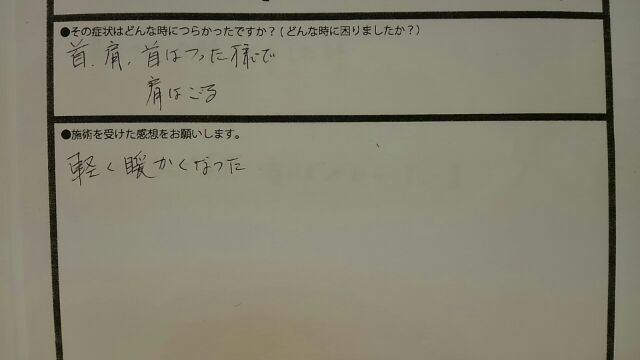 ●その症状はどんな時につらかったですか？(どんな時に困りましたか？)
首、肩、首はつった様で
肩はこる
●施術を受けた感想をお願いします。
軽く暖かくなった